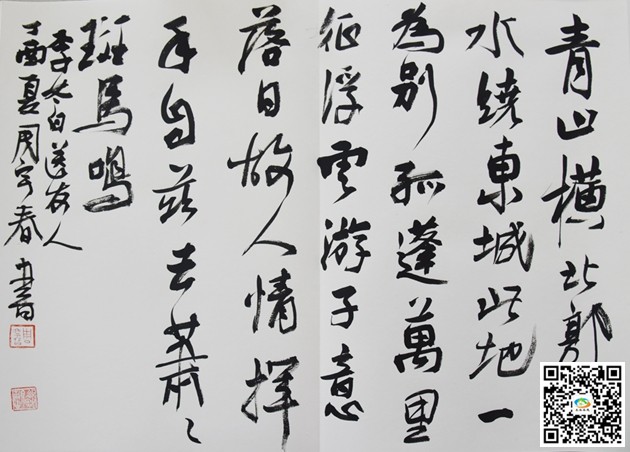 青山橫北郭
水繞東城此地一
為別孤蓬萬里
征浮雲游子意
落日故人情揮
手自茲去蕭々
班馬鳴
李太白送友人
丁酉夏周宇春書